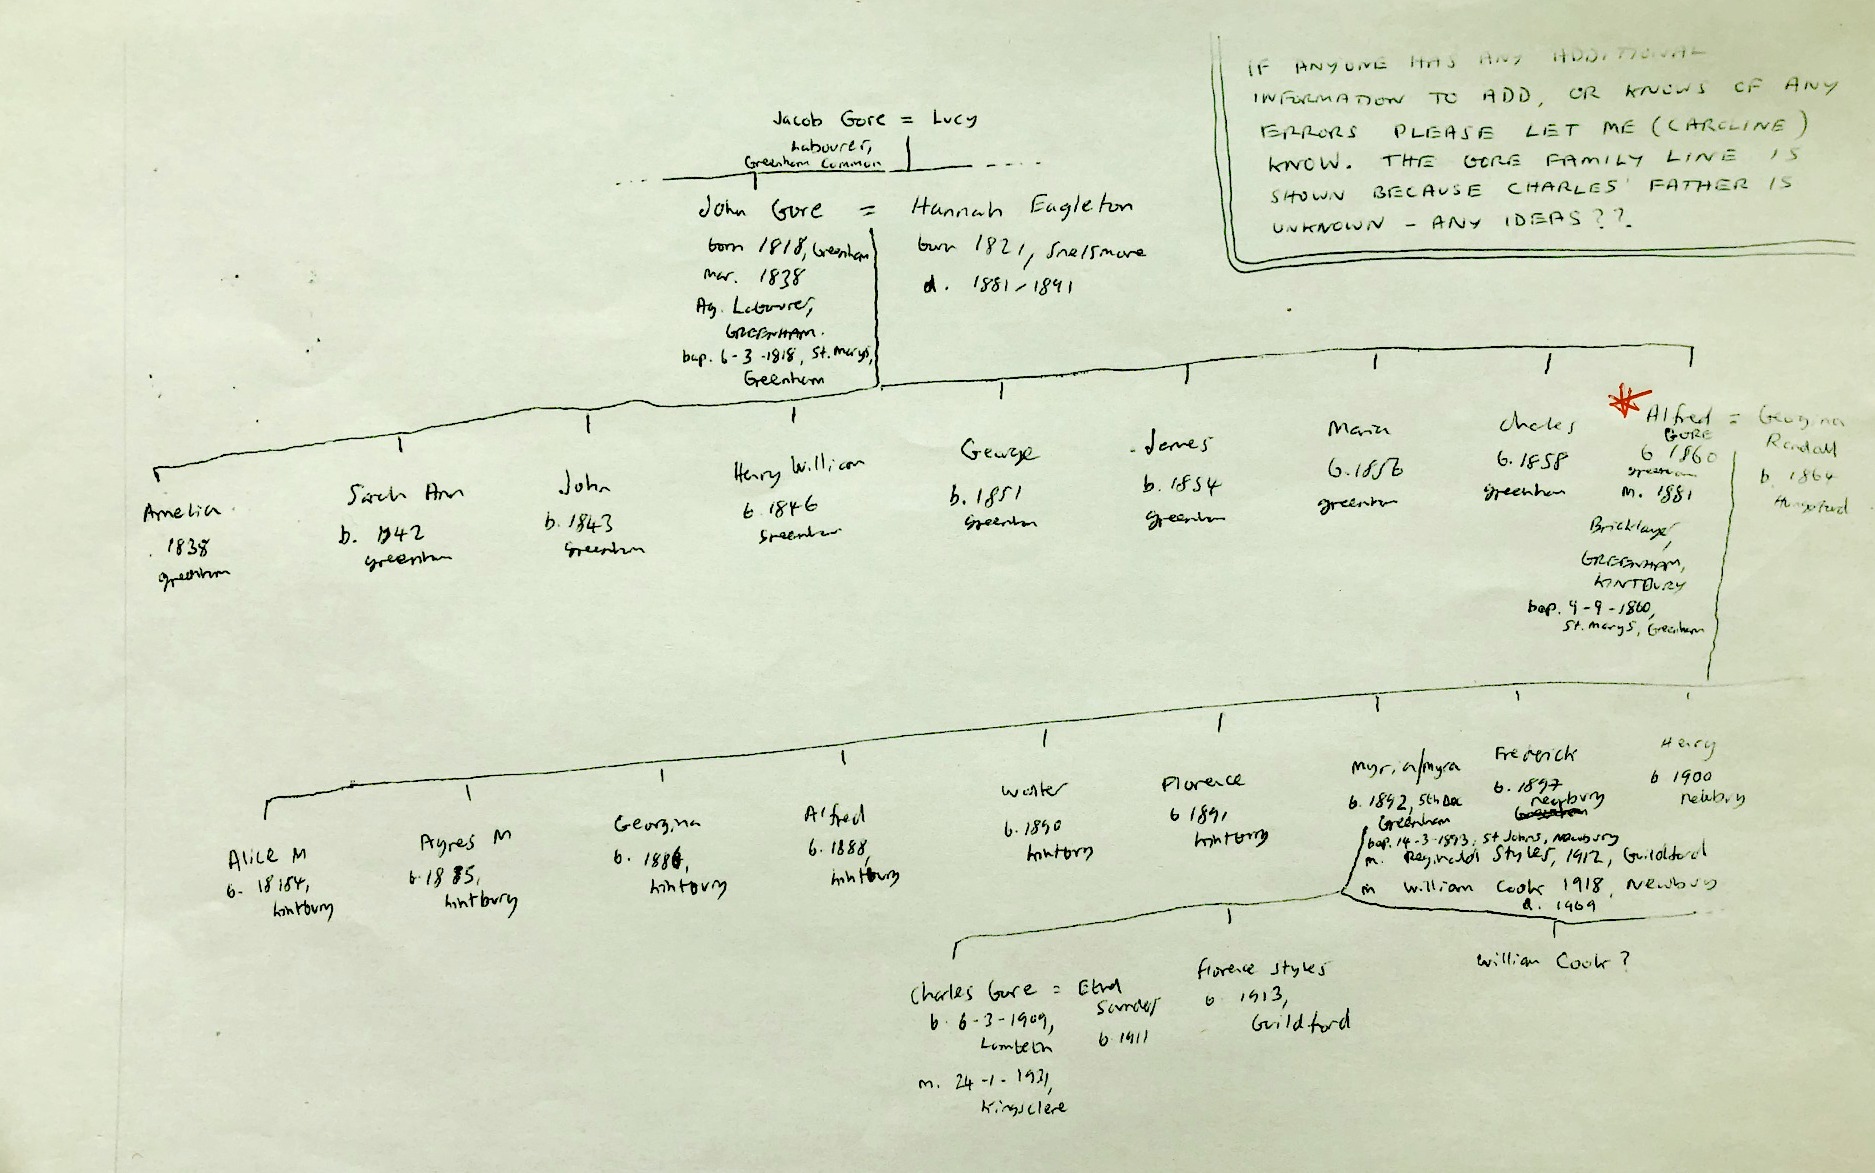 IF ANYONE HAS ANY ADDITIONAL
INFORMATION TO ADD, OR KNOWS OF ANY
ERRORS PLEASE LET ME (CAROLINE)
KNOW. THE GORE FAMILY LINE IS
SHOWN BECAUSE CHARLES' FATHER IS
UNKNOWN - ANY IDEAS??.
Jacob Gore = Lucy
Labourer,
Greenham Common
John Gore = Hannah Eagleton
born 1818, Greenham
mar. 1838
Ag. Labourer,
GREENHAM.
bap. 6-3-1818, St. Marys,
Greenham
born 1821, Snelsmore
d. 1881/1891
Amelia
1838
greenham
Sarah Ann
b. 1842
greenham
John
b. 1843
greenham
Henry William
b 1846
greenham
George
b. 1851
greenham
James
b. 1854
greenham
Maria
b. 1856
greenham
Charles
b. 1858
greenham
Alfred = Georgina
GORE
b 1860
greenham
m. 1881
Bricklayer,
GREENHAM,
KINTBURY
bap. 9-9-1860,
St. Marys, Greenham
Randall
b. 1864
Hungerford
Alice M
b. 1884,
kintbury
Agnes M
b 1885,
kintbury
Georgina
b. 1886,
kintbury
Alfred
b. 1888,
kintbury
Walter
b. 1890
kintbury
Florence
b 1891
kintbury
Myria/Myra
b. 1892, 5th Dec
Greenham
bap. 14-3-1893, St Johns, Newbury
m. Reginald Styles, 1912, Guildford
m William Cook 1918, Newbury
d. 1969
Frederick
b. 1897
newbury
Henry
b 1900
newbury
Charles Gore = Ethel
b. 6-3-1909,
Lambeth
m. 24-1-1931,
Kingsclere
b 1911
Florence Styles
b 1913,
Guildford
William Cook?